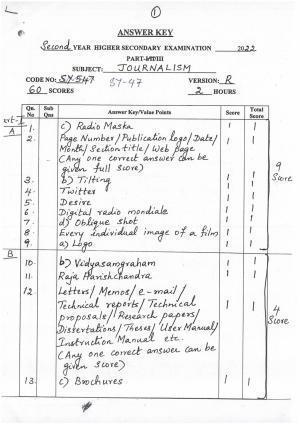 1
ANSWER KEY
Second YEAR HIGHER SECONDARY EXAMINATION 2022
PART-III
SUBJECT: JOURNALISM
CODE NO: SY-547 SY-47 VERSION: R
60 SCORES 2 HOURS
Qn. No Sub Qns Answer Key/Value Points Score Total Score
Part-I
A 1. c) Radio Maska 1 1
2. Page Number/Publication logo/Date/ 1 1
Month/Section title/Web page
(Any one correct answer can be
given full score)
3. b) Tilting 1 1
4. Twitter 1 1
5. Desire 1 1
6. Digital radio mondiale 1 1
7. d) Oblique shot 1 1
8. Every individual image of a film 1 1
9. a) Logo 1 1
9 Score
B 10. b) Vidyasamgraham 1 1
11. Raja Harishchandra 1 1
12. Letters/Memos/e-mail/
Technical reports/Technical 1 1
proposals/Research papers/
Dissertations/Theses/User Manual/
Instruction Manual etc.
(Any one correct answer can be
given score)
13. c) Brochures 1 1
4 Score